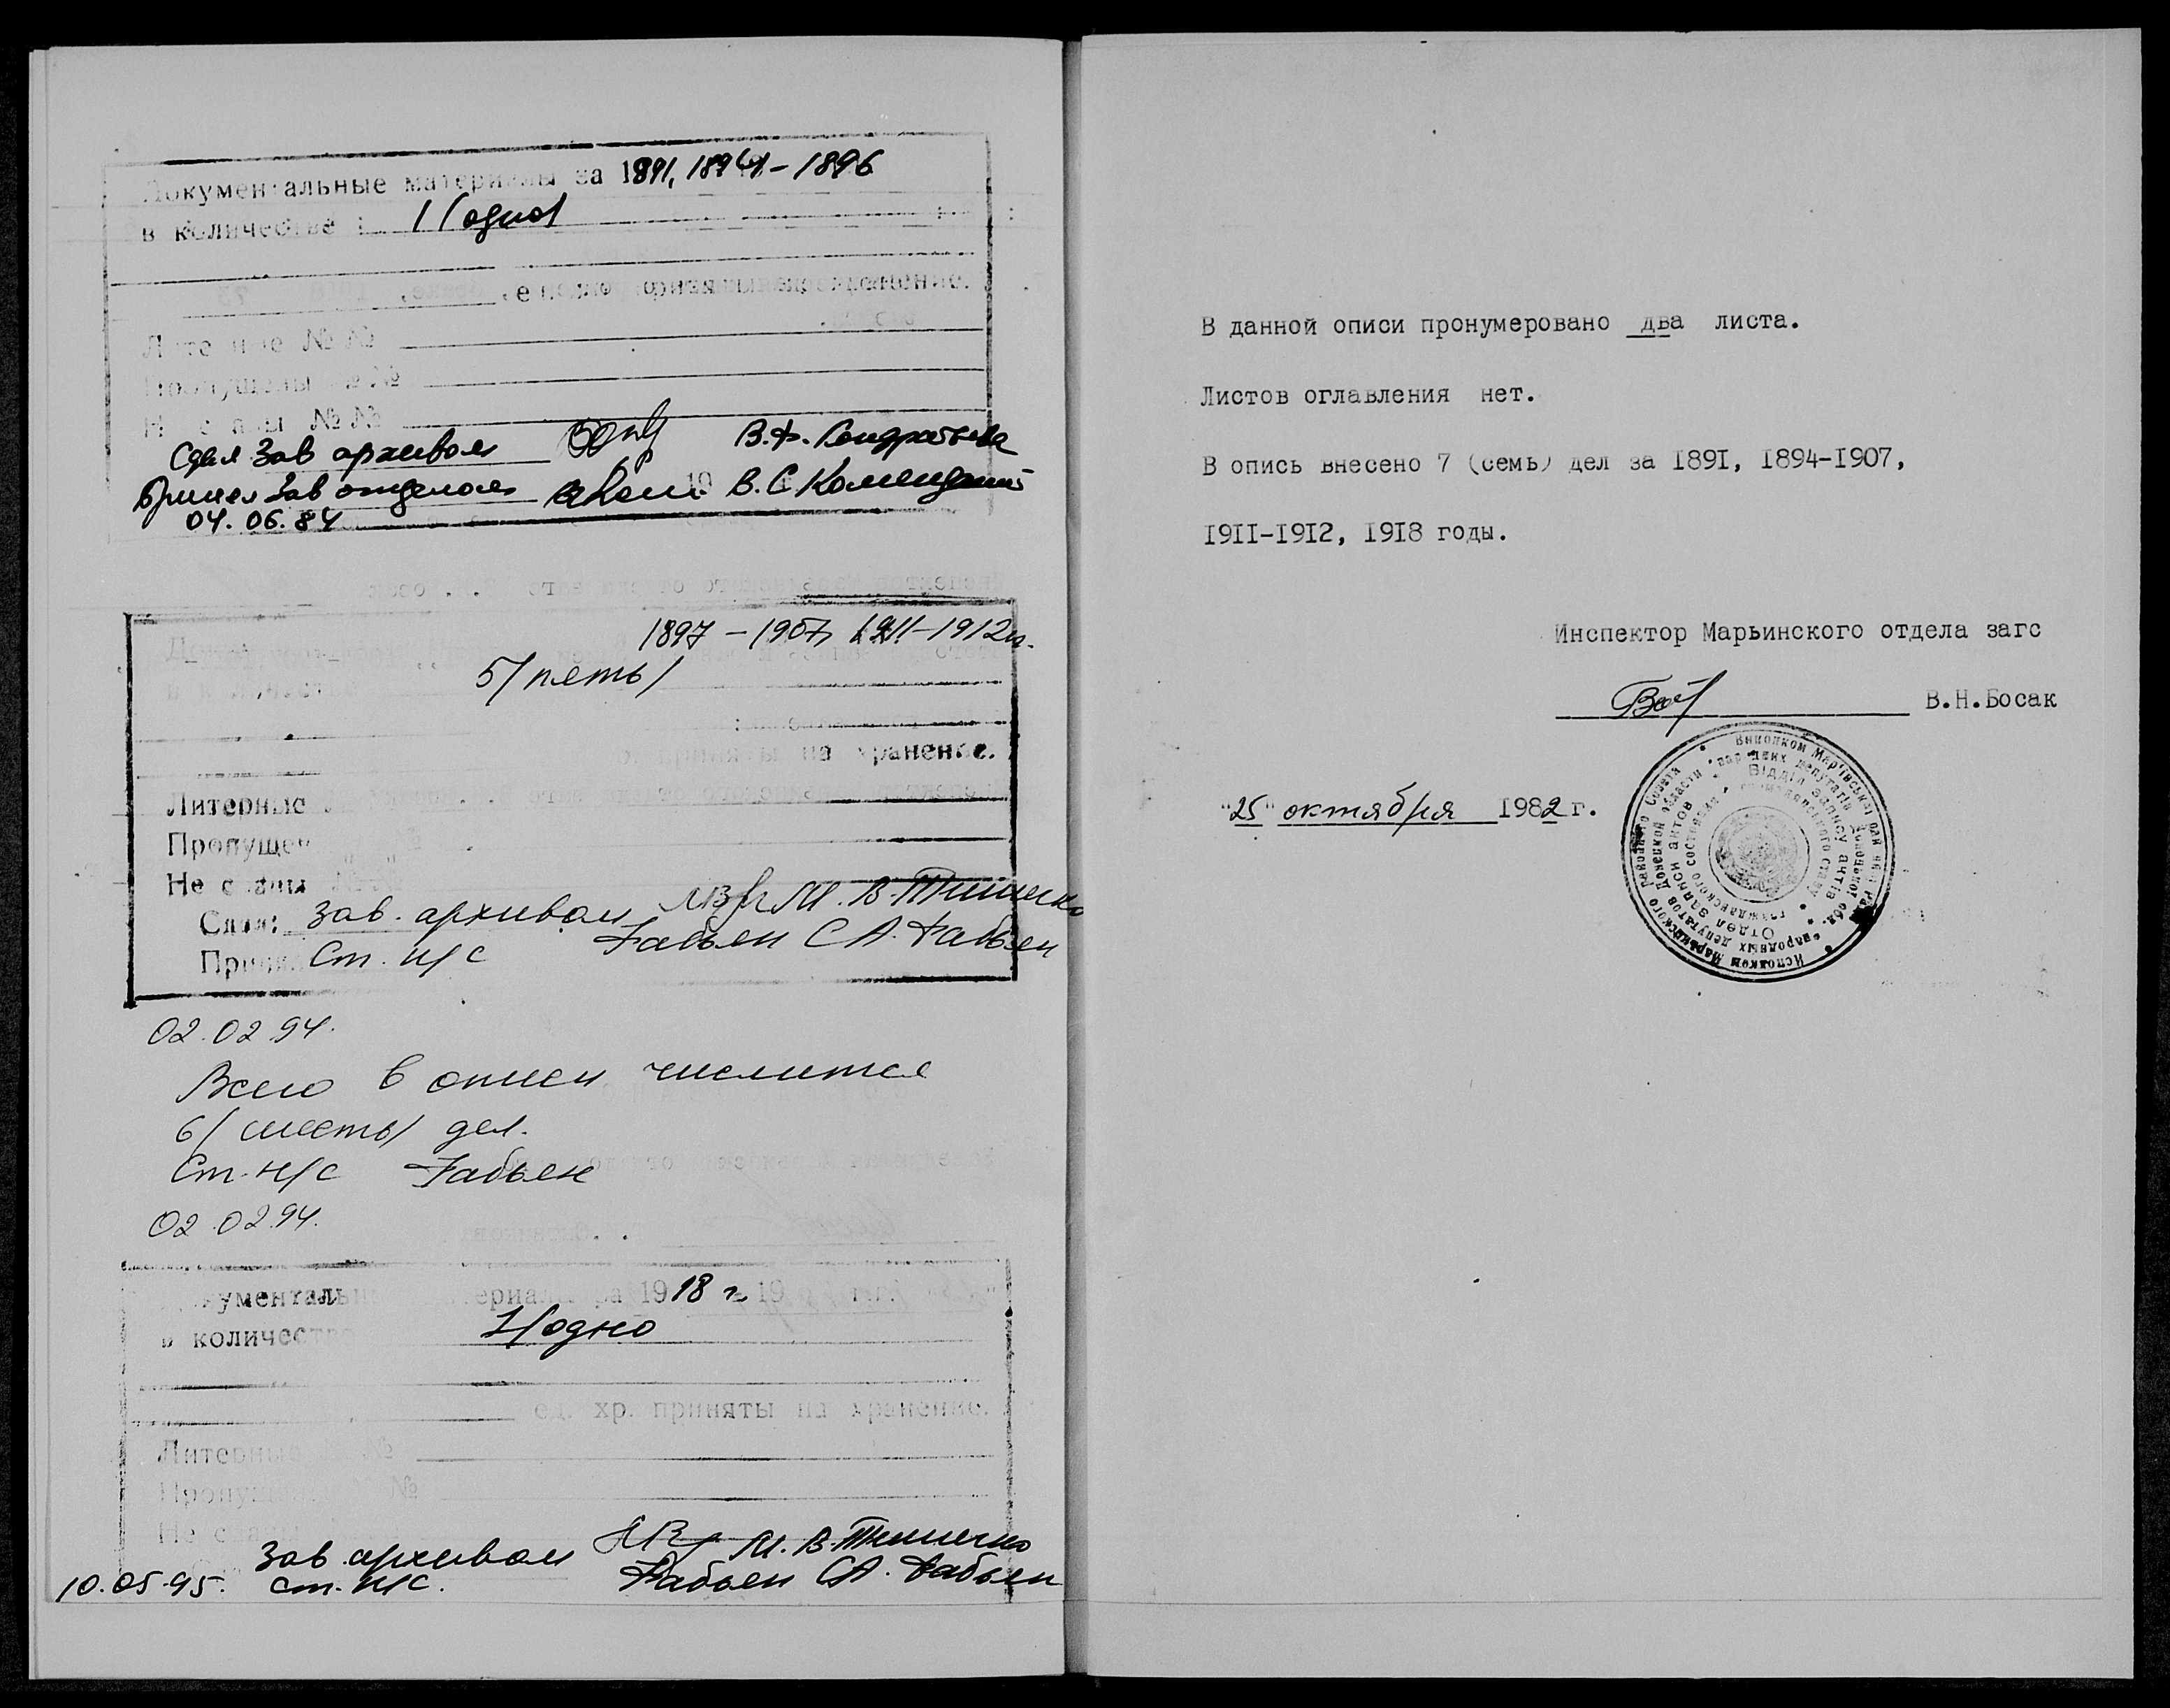 Документальные материалы за 1891, 1894-1896
в количестве 1 (одно)
Сдал Зав архивом В.Ф. Кондратьева
Принял Зав отделом В.С. Комендант
04.06.84
1897-1907, 1911-1912гг.
5/пять/
на хранение.
Литерные
Пропущен
Не сданы
Сдал: Зав. архивом М.В. Тишечко
Принял Ст. н/с Фабьян С.А. Фабьян
02.02.94.
Всего в описи числится
6/шесть/ дел.
Ст. н/с Фабьян
02.02.94.
Документальные материалы за 1918 г. 19
в количестве 1/одно
ед. хр. приняты на хранение.
Литерные №
Пропущены №
Не сданы
Зав. архивом М.В. Тишечко
10.05.95. ст. н/с. Фабьян С.А. Фабьян
В данной описи пронумеровано два листа.
Листов оглавления нет.
В опись внесено 7 (семь) дел за 1891, 1894-1907,
1911-1912, 1918 годы.
Инспектор Марьинского отдела загс
В.Н.Босак
"25" октября 1982 г.
Виконком Мар'їнської районної Ради народних депутатів Донецької обл.
Відділ запису актів громадянського стану
Исполком Марьинского районного Совета народных депутатов Донецкой области
Отдел записи актов гражданского состояния